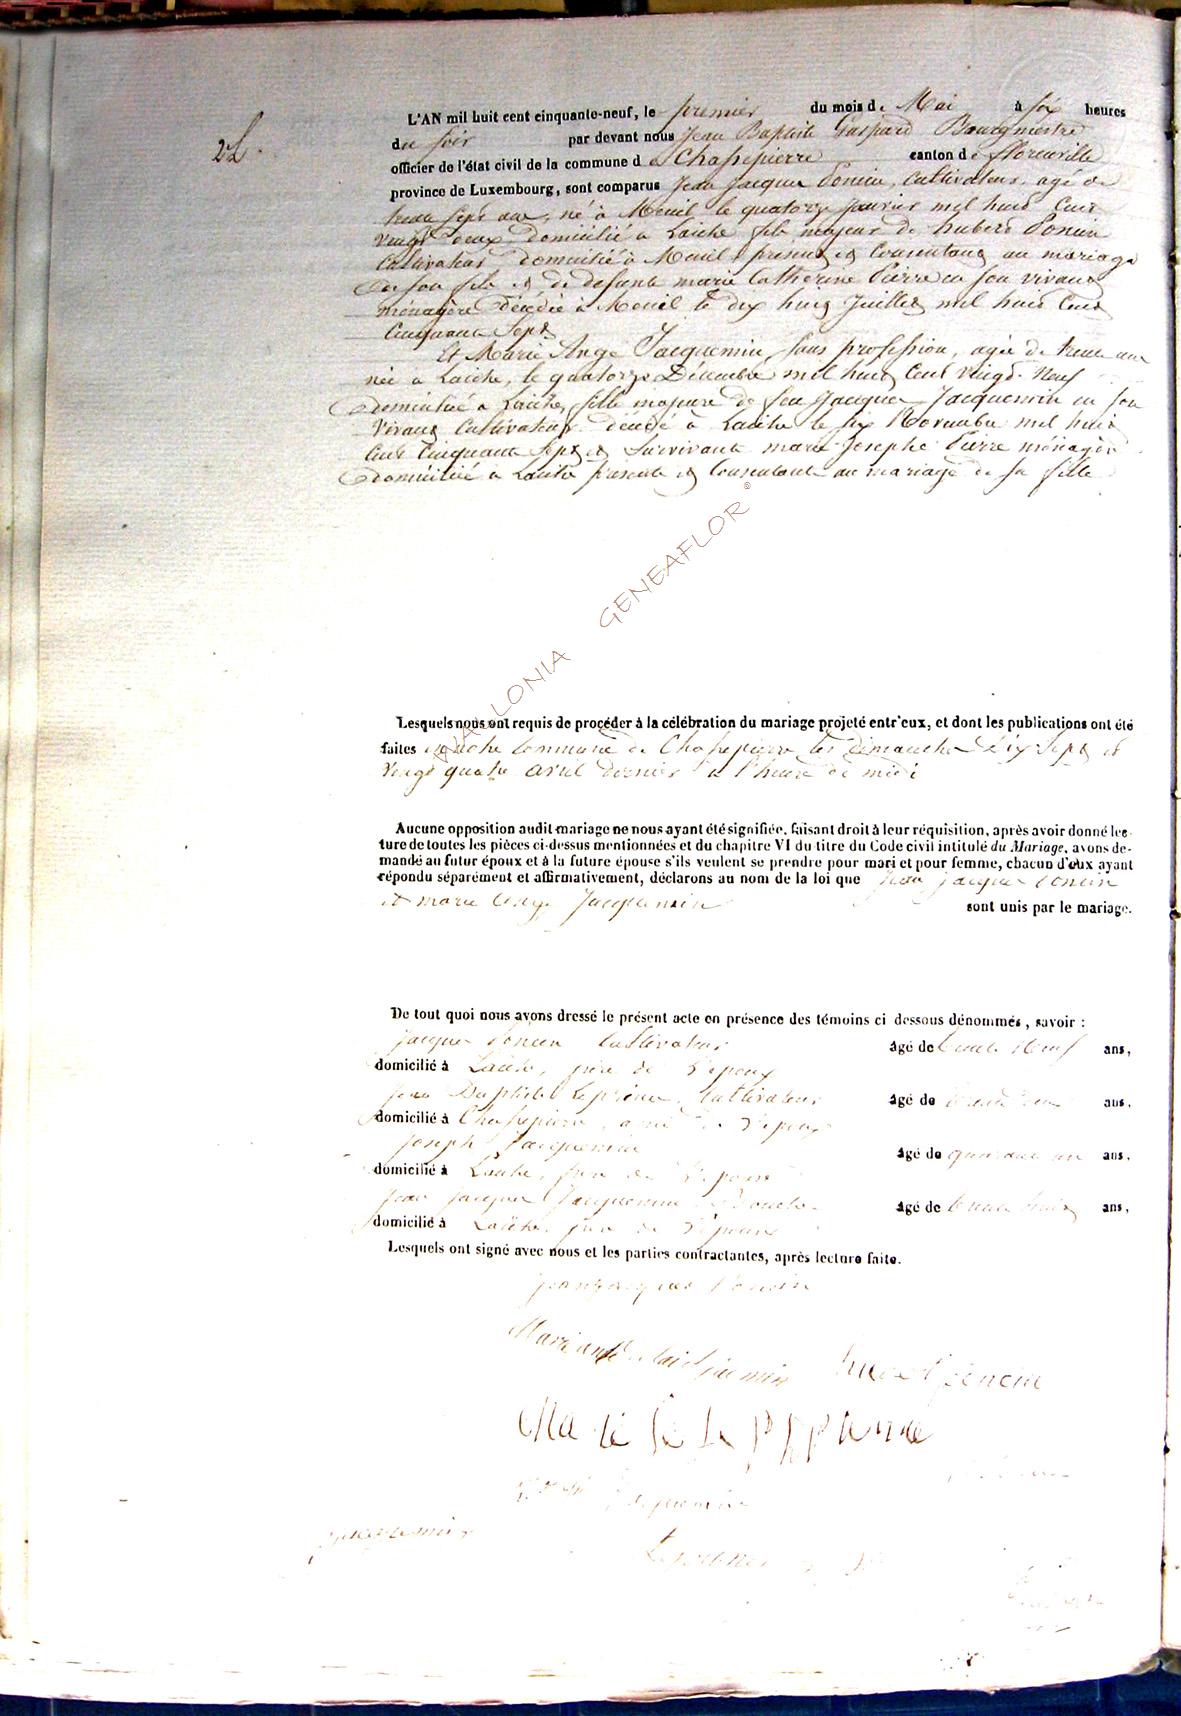 2
L'AN mil huit cent cinquante-neuf, le premier du mois de Mai à six heures
du soir par devant nous Jean Baptiste Gaspard Bourgmestre
officier de l'état civil de la commune de Chassepierre canton de florenville
province de Luxembourg, sont comparus Jean Jacques Poncin, Cultivateur, agé de
trente sept ans, né à Menil le quatorze Janvier mil huit Cent
vingt deux, domicilié à Laiche fils majeur de hubert Poncin
Cultivateur domicilié à Menil présent et Consentant au mariage
de son fils et de defunte marie Catherine Pierre en son vivant
ménagère décédée à Menil le dix huit Juillet mil huit Cent
Cinquante Sept
Et Marie Ange Jacquemin, sans profession, agée de trente ans
née à Laiche, le quatorze Décembre mil huit Cent vingt Neuf
domiciliée à Laiche, fille majeure de feu Jacques Jacquemin en son
vivant Cultivateur décédé à Laiche le six Novembre mil huit
Cent Cinquante Sept et Survivante marie Josephe Pierre ménagère
domiciliée à Laiche présente et Consentante au mariage de sa fille
WALLONIA GENEAFLOR ©
Lesquels nous ont requis de procéder à la célébration du mariage projeté entr'eux, et dont les publications ont été
faites en notre Commune de Chassepierre les dimanches Dix Sept et
vingt quatre avril dernier à l'heure de midi
Aucune opposition audit mariage ne nous ayant été signifiée, faisant droit à leur réquisition, après avoir donné lec-
ture de toutes les pièces ci-dessus mentionnées et du chapitre VI du titre du Code civil intitulé du Mariage, avons de-
mandé au futur époux et à la future épouse s'ils veulent se prendre pour mari et pour femme, chacun d'eux ayant
répondu séparément et affirmativement, déclarons au nom de la loi que Jean jacques Poncin
et marie Ange Jacquemin sont unis par le mariage.
De tout quoi nous avons dressé le présent acte en présence des témoins ci dessous dénommés, savoir :
Jacques Poncin Cultivateur âgé de trente Neuf ans,
domicilié à Laiche, frère de l'époux
Jean Baptiste Leprince, Cultivateur âgé de trente ans,
domicilié à Chassepierre, ami de l'époux
Joseph Jacquemin âgé de quarante un ans,
domicilié à Laiche, frère de l'épouse
Jean Jacques Jacquemin âgé de trente huit ans,
domicilié à Laiche, frère de l'épouse
Lesquels ont signé avec nous et les parties contractantes, après lecture faite.
jean jacques Poncin
Marie ange Jacquemin hubert poncin
Jacquemin
jacquemin